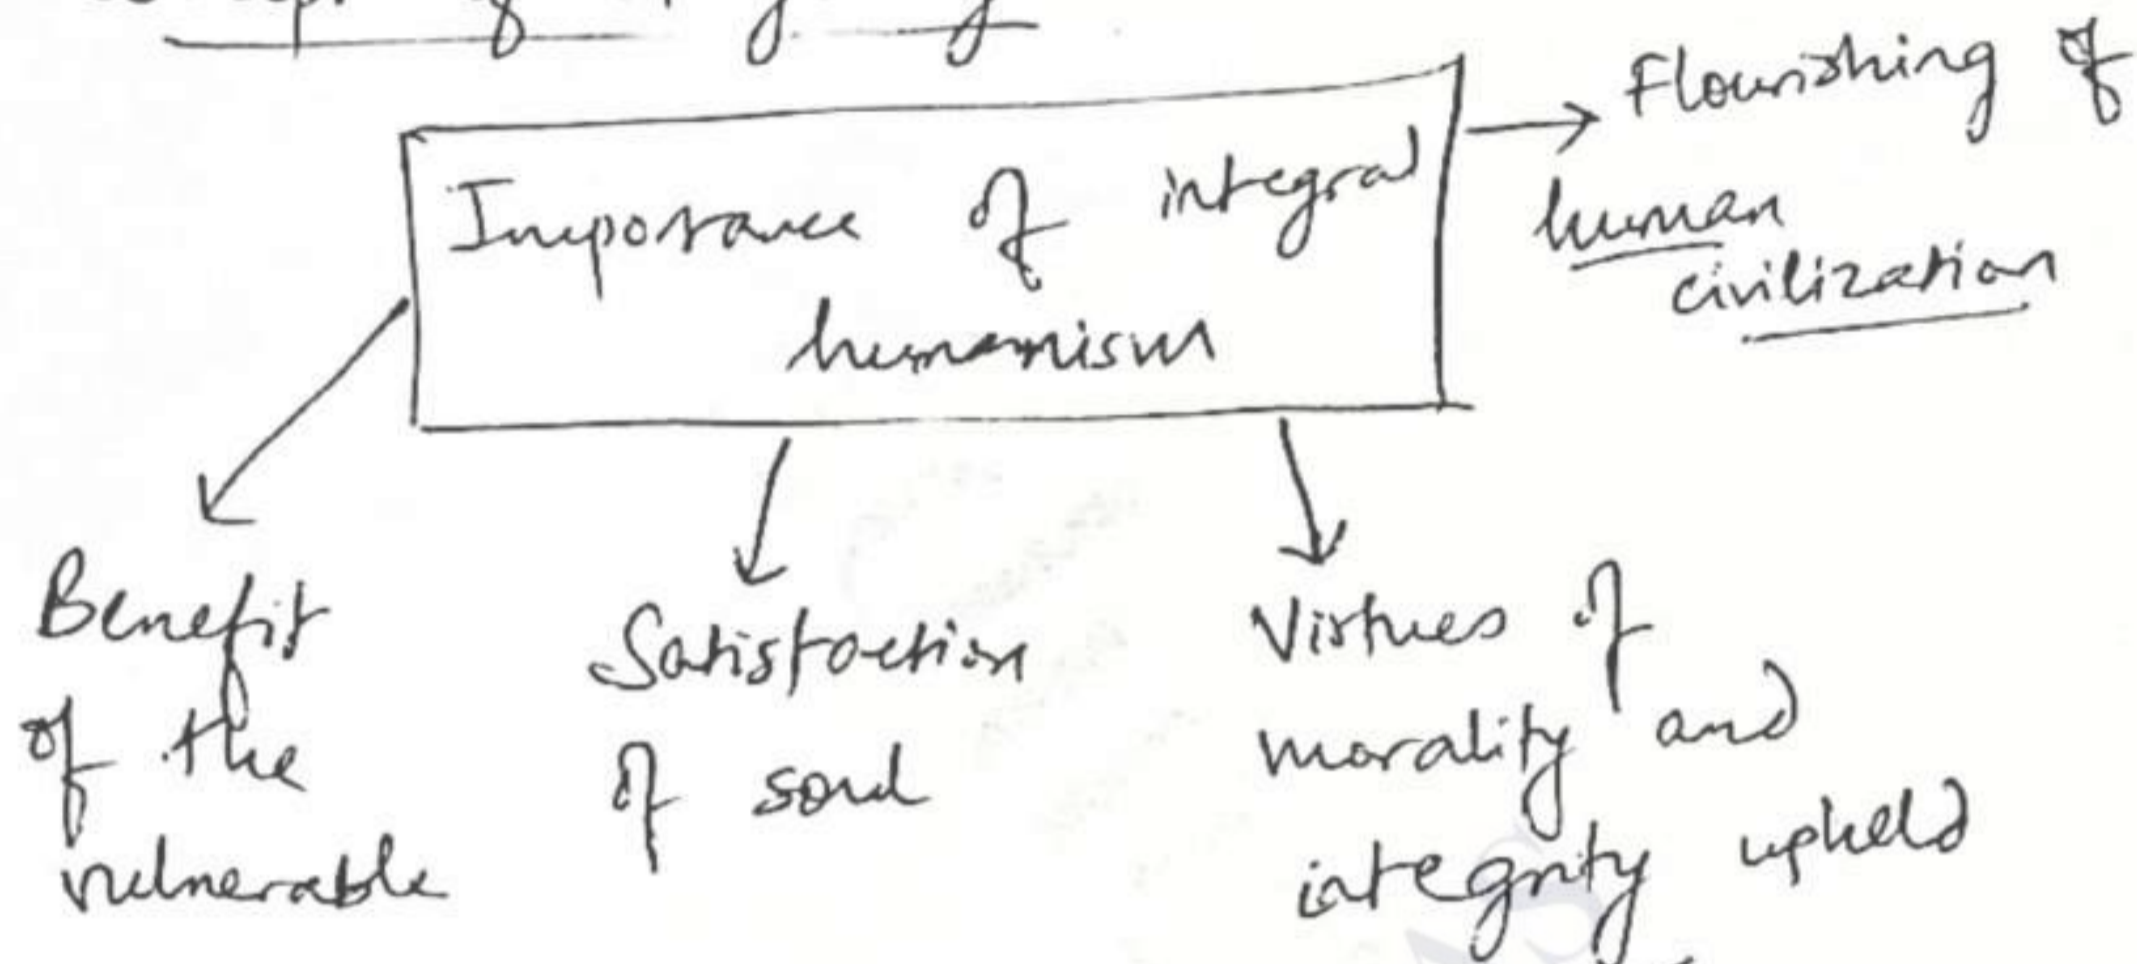 Imporance of integral
humanism
Flourishing of
human
civilization
Benefit
of the
vulnerable
Satisfaction
of soul
Virtues of
morality and
integrity upheld